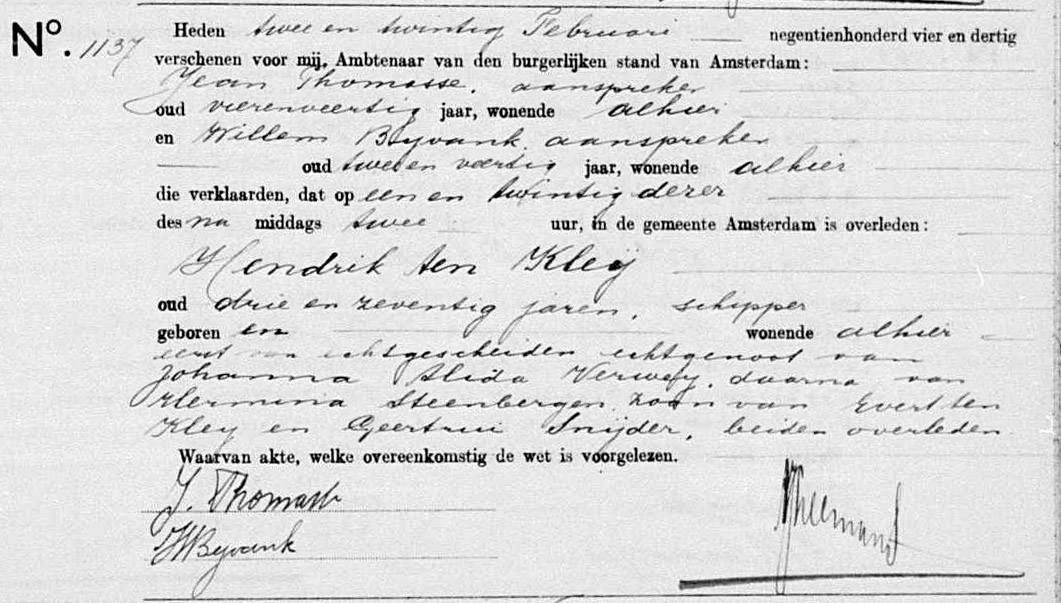 No. 1137
Heden twee en twintig Februari negentienhonderd vier en dertig
verschenen voor mij, Ambtenaar van den burgerlijken stand van Amsterdam:
Jean Thomasse, aanspreker
oud vierenveertig jaar, wonende alhier
en Willem Byvank, aanspreker
oud twee en veertig jaar, wonende alhier
die verklaarden, dat op een en twintig dezer
des na middags twee uur, in de gemeente Amsterdam is overleden:
Hendrik ten Kley
oud drie en zeventig jaren, schipper
geboren en wonende alhier
eerst van echtgescheiden echtgenoot van
Johanna Alida Verwey, daarna van
Hermina Steenbergen, zoon van Evert ten
Kley en Geertrui Snijder, beiden overleden.
Waarvan akte, welke overeenkomstig de wet is voorgelezen.
J. Thomasse
W Byvank